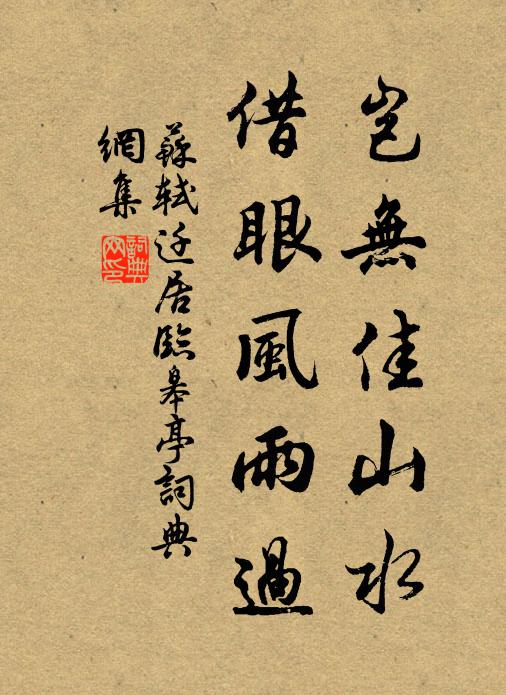 豈無佳山水
借眼風雨過
蘇軾遷居臨皋亭詞典
網集
詞典網印